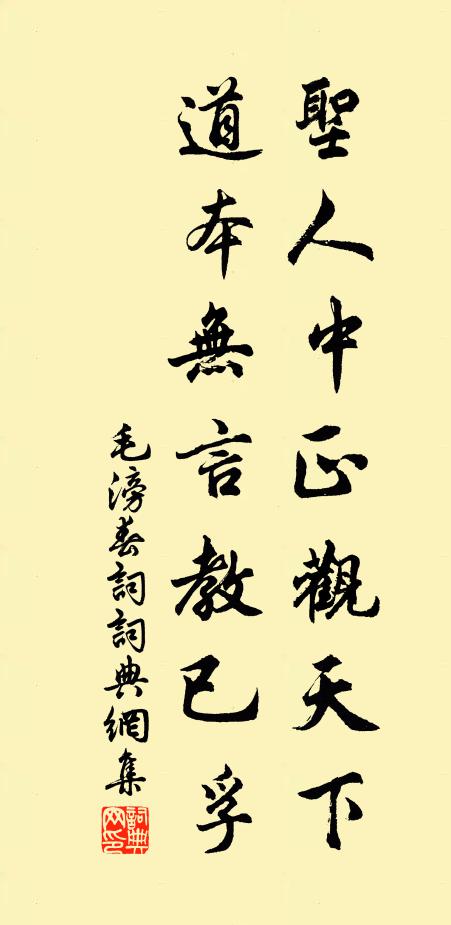 聖人中正觀天下
道本無言教已孚
毛滂春詞詞典網集
詞典網印